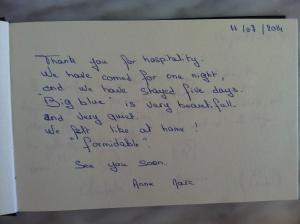 11/07/2014
Thank you for hospitality.
We have comed for one night,
and we have stayed five days.
"Big blue" is very beautifull
and very quiet.
We felt like at home!
"formidable".
See you soon.
Anne Marc